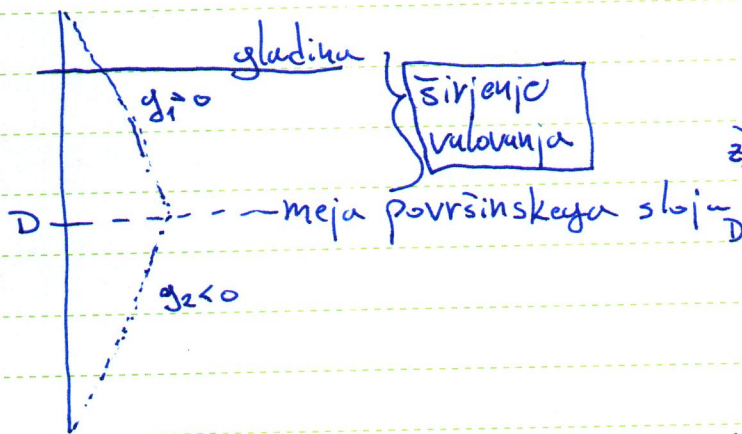 gladina
g₁>0
širjenje
valovanja
z
D
meja površinskega sloja
D
g₂<0